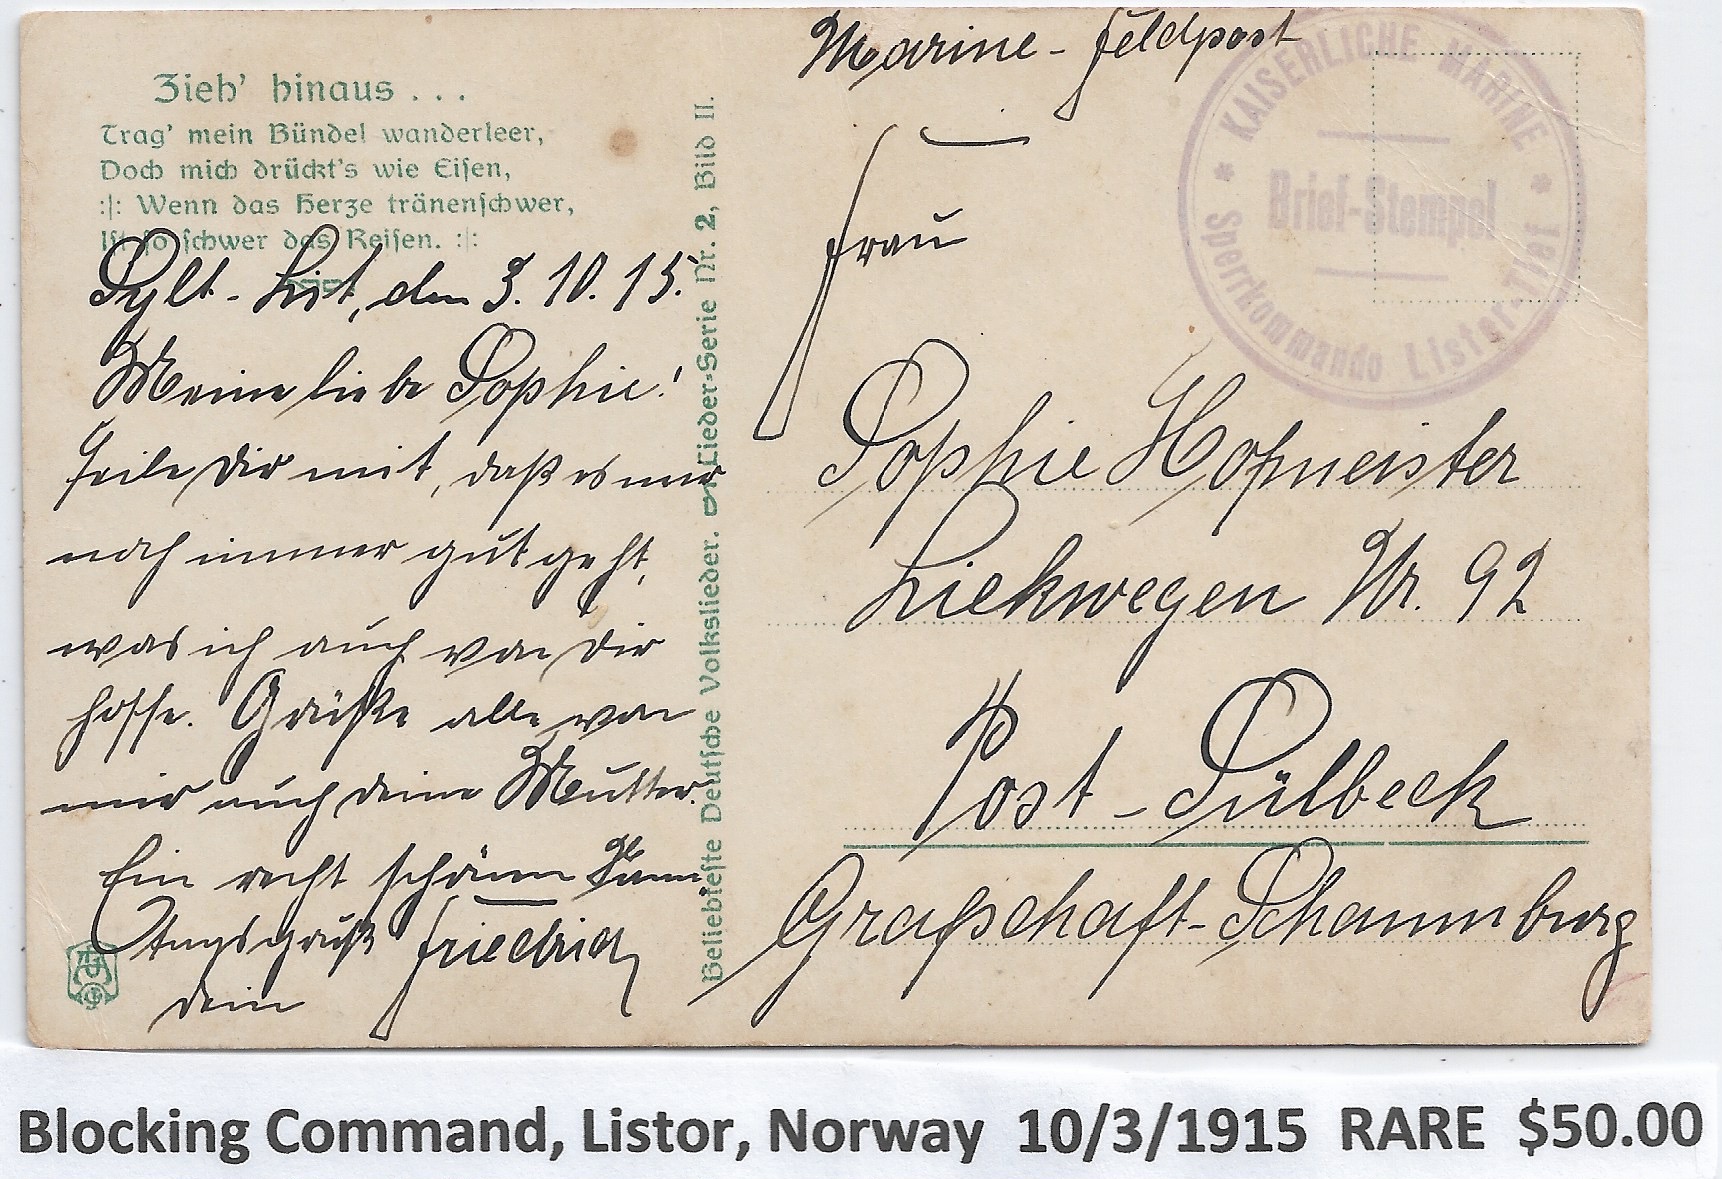 Zieh' hinaus . . .
Trag' mein Bündel wanderleer,
Doch mich drückt's wie Eisen,
:|: Wenn das Herze tränenschwer,
Ist so schwer das Reisen. :|:
Sylt - List, den 3. 10. 15.
Meine liebe Sophie!
Teile Dir mit, daß es mir
noch immer gut geht,
was ich auch von Dir
hoffe. Grüße alle von
mir auch deine Mutter.
Ein recht schönen Sonn.
tagsgruß Friedrich
dein
Beliebteste Deutsche Volkslieder. Lieder-Serie Nr. 2, Bild II.
Marine - Feldpost
KAISERLICHE MARINE
* Brief-Stempel *
Sperrkommando Lister-Tief
Frau
Sophie Hofmeister
Liekwegen Nr. 92
Post - Sülbeck
Grafschaft - Schaumburg
Blocking Command, Listor, Norway 10/3/1915 RARE $50.00